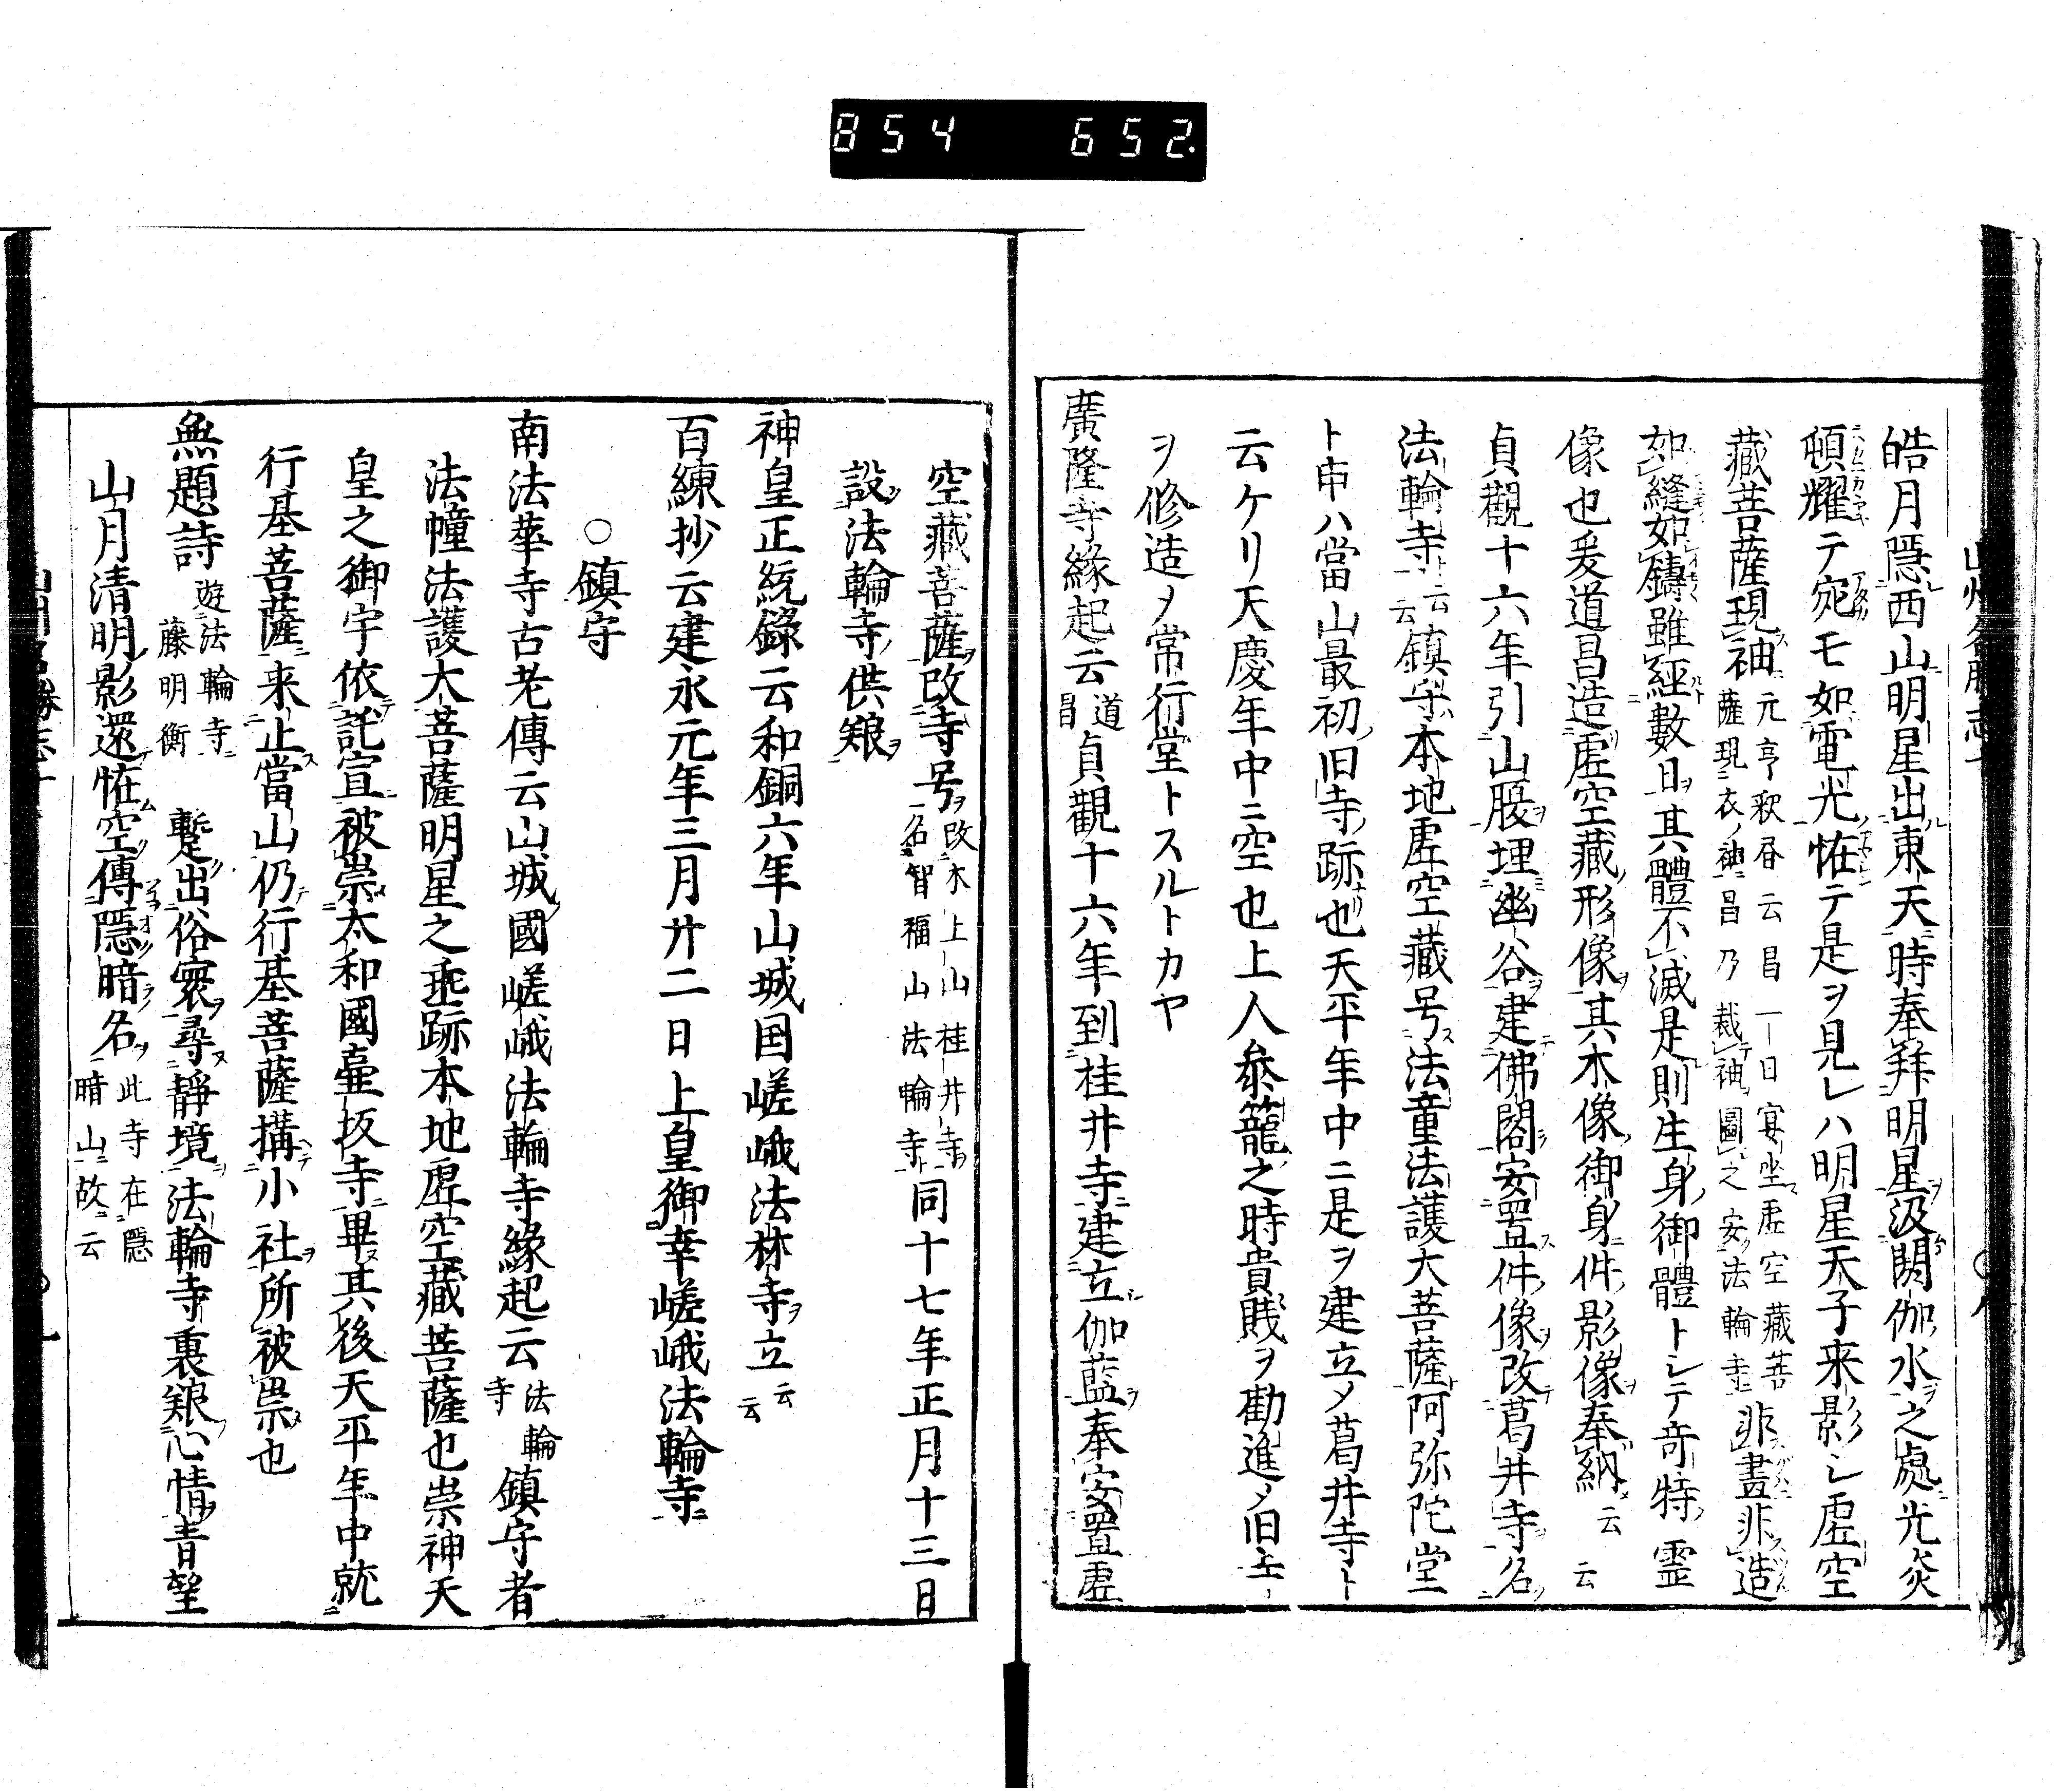 854 652.
皓月隠西山明星出東天時奉拜明星汲閼伽水之處光炎
頓耀テ宛モ如電光恠テ是ヲ見レハ明星天子来影シ虚空
藏菩薩現袖
元亨釈書云昌一日宴坐虚空藏菩
薩現衣袖昌乃裁袖圖之安法輪寺
非畫非造
如縫如鑄雖經數日其體不滅是則生身御體トシテ奇特霊
像也爰道昌造虚空藏形像其木像御身件影像奉納云云
貞觀十六年引山腹埋幽谷建佛閣安置件像改葛井寺名
法輪寺云云鎮守本地虚空藏号法童法護大菩薩阿弥陀堂
ト申ハ當山最初旧寺跡也天平年中ニ是ヲ建立メ葛井寺ト
云ケリ天慶年中ニ空也上人叅籠之時貴賎ヲ勸進メ旧
ヲ修造ノ常行堂トスルトカヤ
廣隆寺緣起云道昌貞觀十六年到桂井寺建立伽藍奉安置虚
空藏菩薩改寺号
改木上山桂井寺
名智福山法輪寺
同十七年正月十三日
設法輪寺供
神皇正統錄云和銅六年山城国嵯峨法林寺立云云
百練抄云建永元年三月廿二日上皇御幸嵯峨法輪寺
○鎮守
南法華寺古老傳云山城國嵯峨法輪寺緣起云法輪寺鎮守者
法幢法護大菩薩明星之垂跡本地虚空藏菩薩也崇神天
皇之御宇依託宣被崇太和國壷坂寺畢其後天平年中就
行基菩薩来止當山仍行基菩薩搆小社所被祟也
無題詩
遊法輪寺
藤明衡
蹔出俗寰尋靜境法輪寺裏心情青望
山月清明影還恠空傳隠暗名
此寺在隠
暗山故云